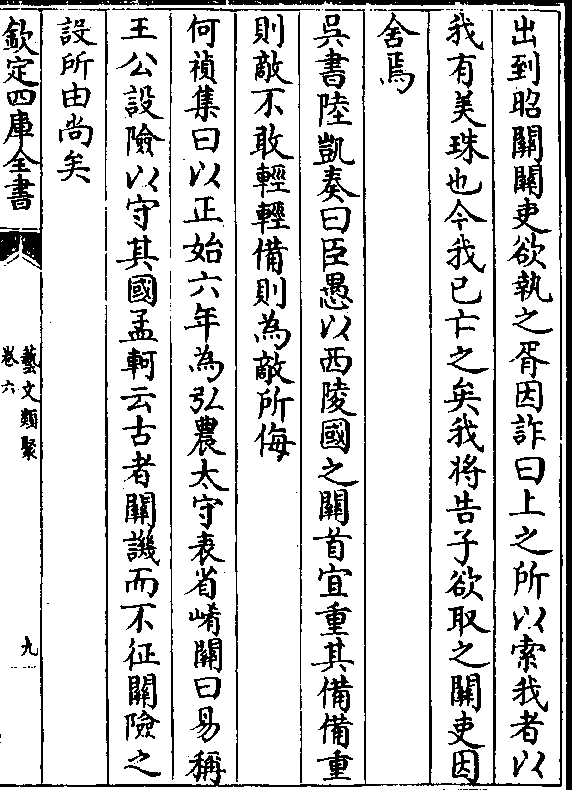 出到昭關關吏欲執之胥因詐曰上之所以索我者以
我有美珠也今我已亡之矣我將告子欲取之關吏因
舍焉
吳書陸凱奏曰臣愚以西陵國之關首宜重其備備重
則敵不敢輕輕備則為敵所侮
何禎集曰以正始六年為弘農太守表省崤關曰易稱
王公設險以守其國孟軻云古者關譏而不征關險之
設所由尚矣
欽定四庫全書
藝文類聚
卷六
九